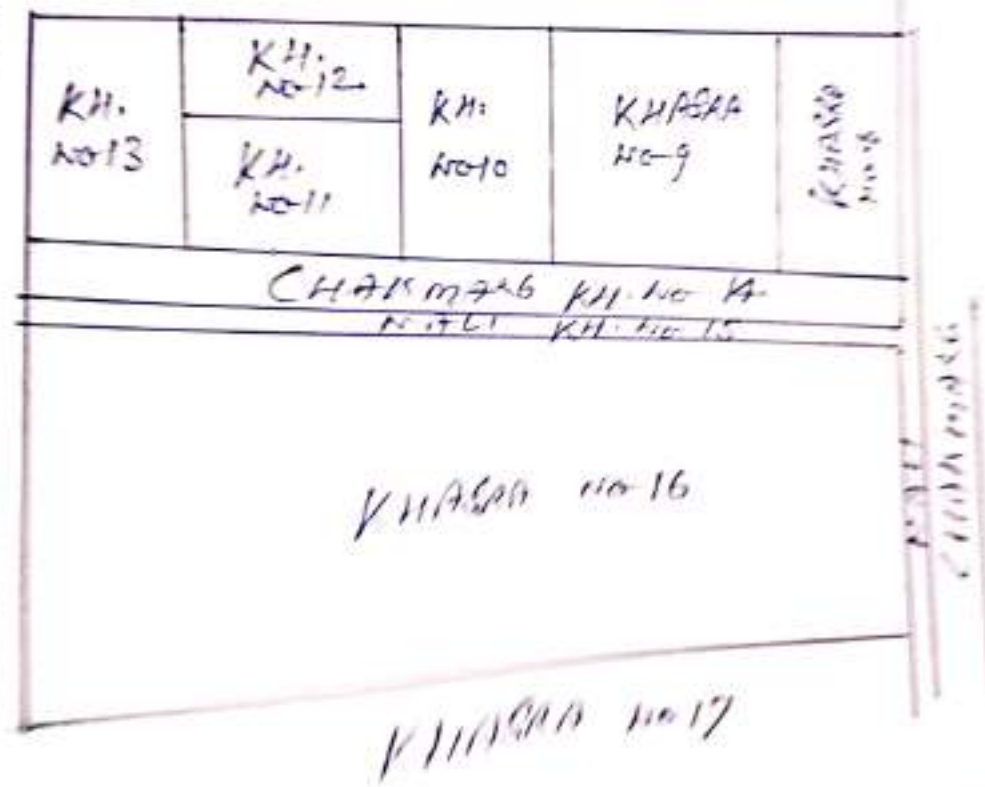 KH.
No-13
KH.
No-12
KH.
No-11
KH:
No-10
KHASRA
No-9
KHASRA
No-8
CHAKMARG KH. No 14
NALI KH. No-15
KHASRA No-16
NALI
CHAKMARG
KHASRA No 17